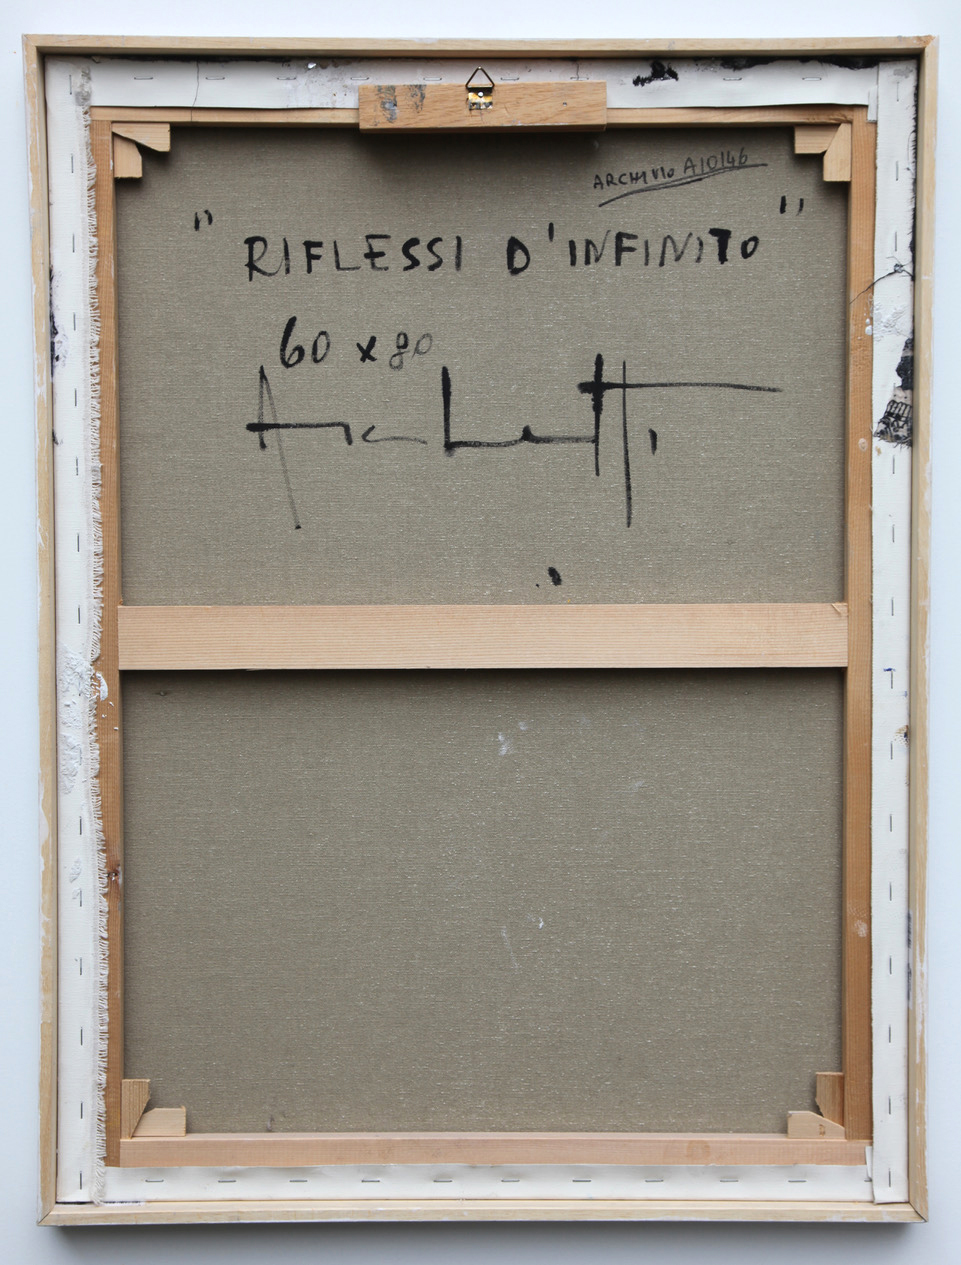 ARCHIVIO A10146
" RIFLESSI D'INFINITO "
60 x 80